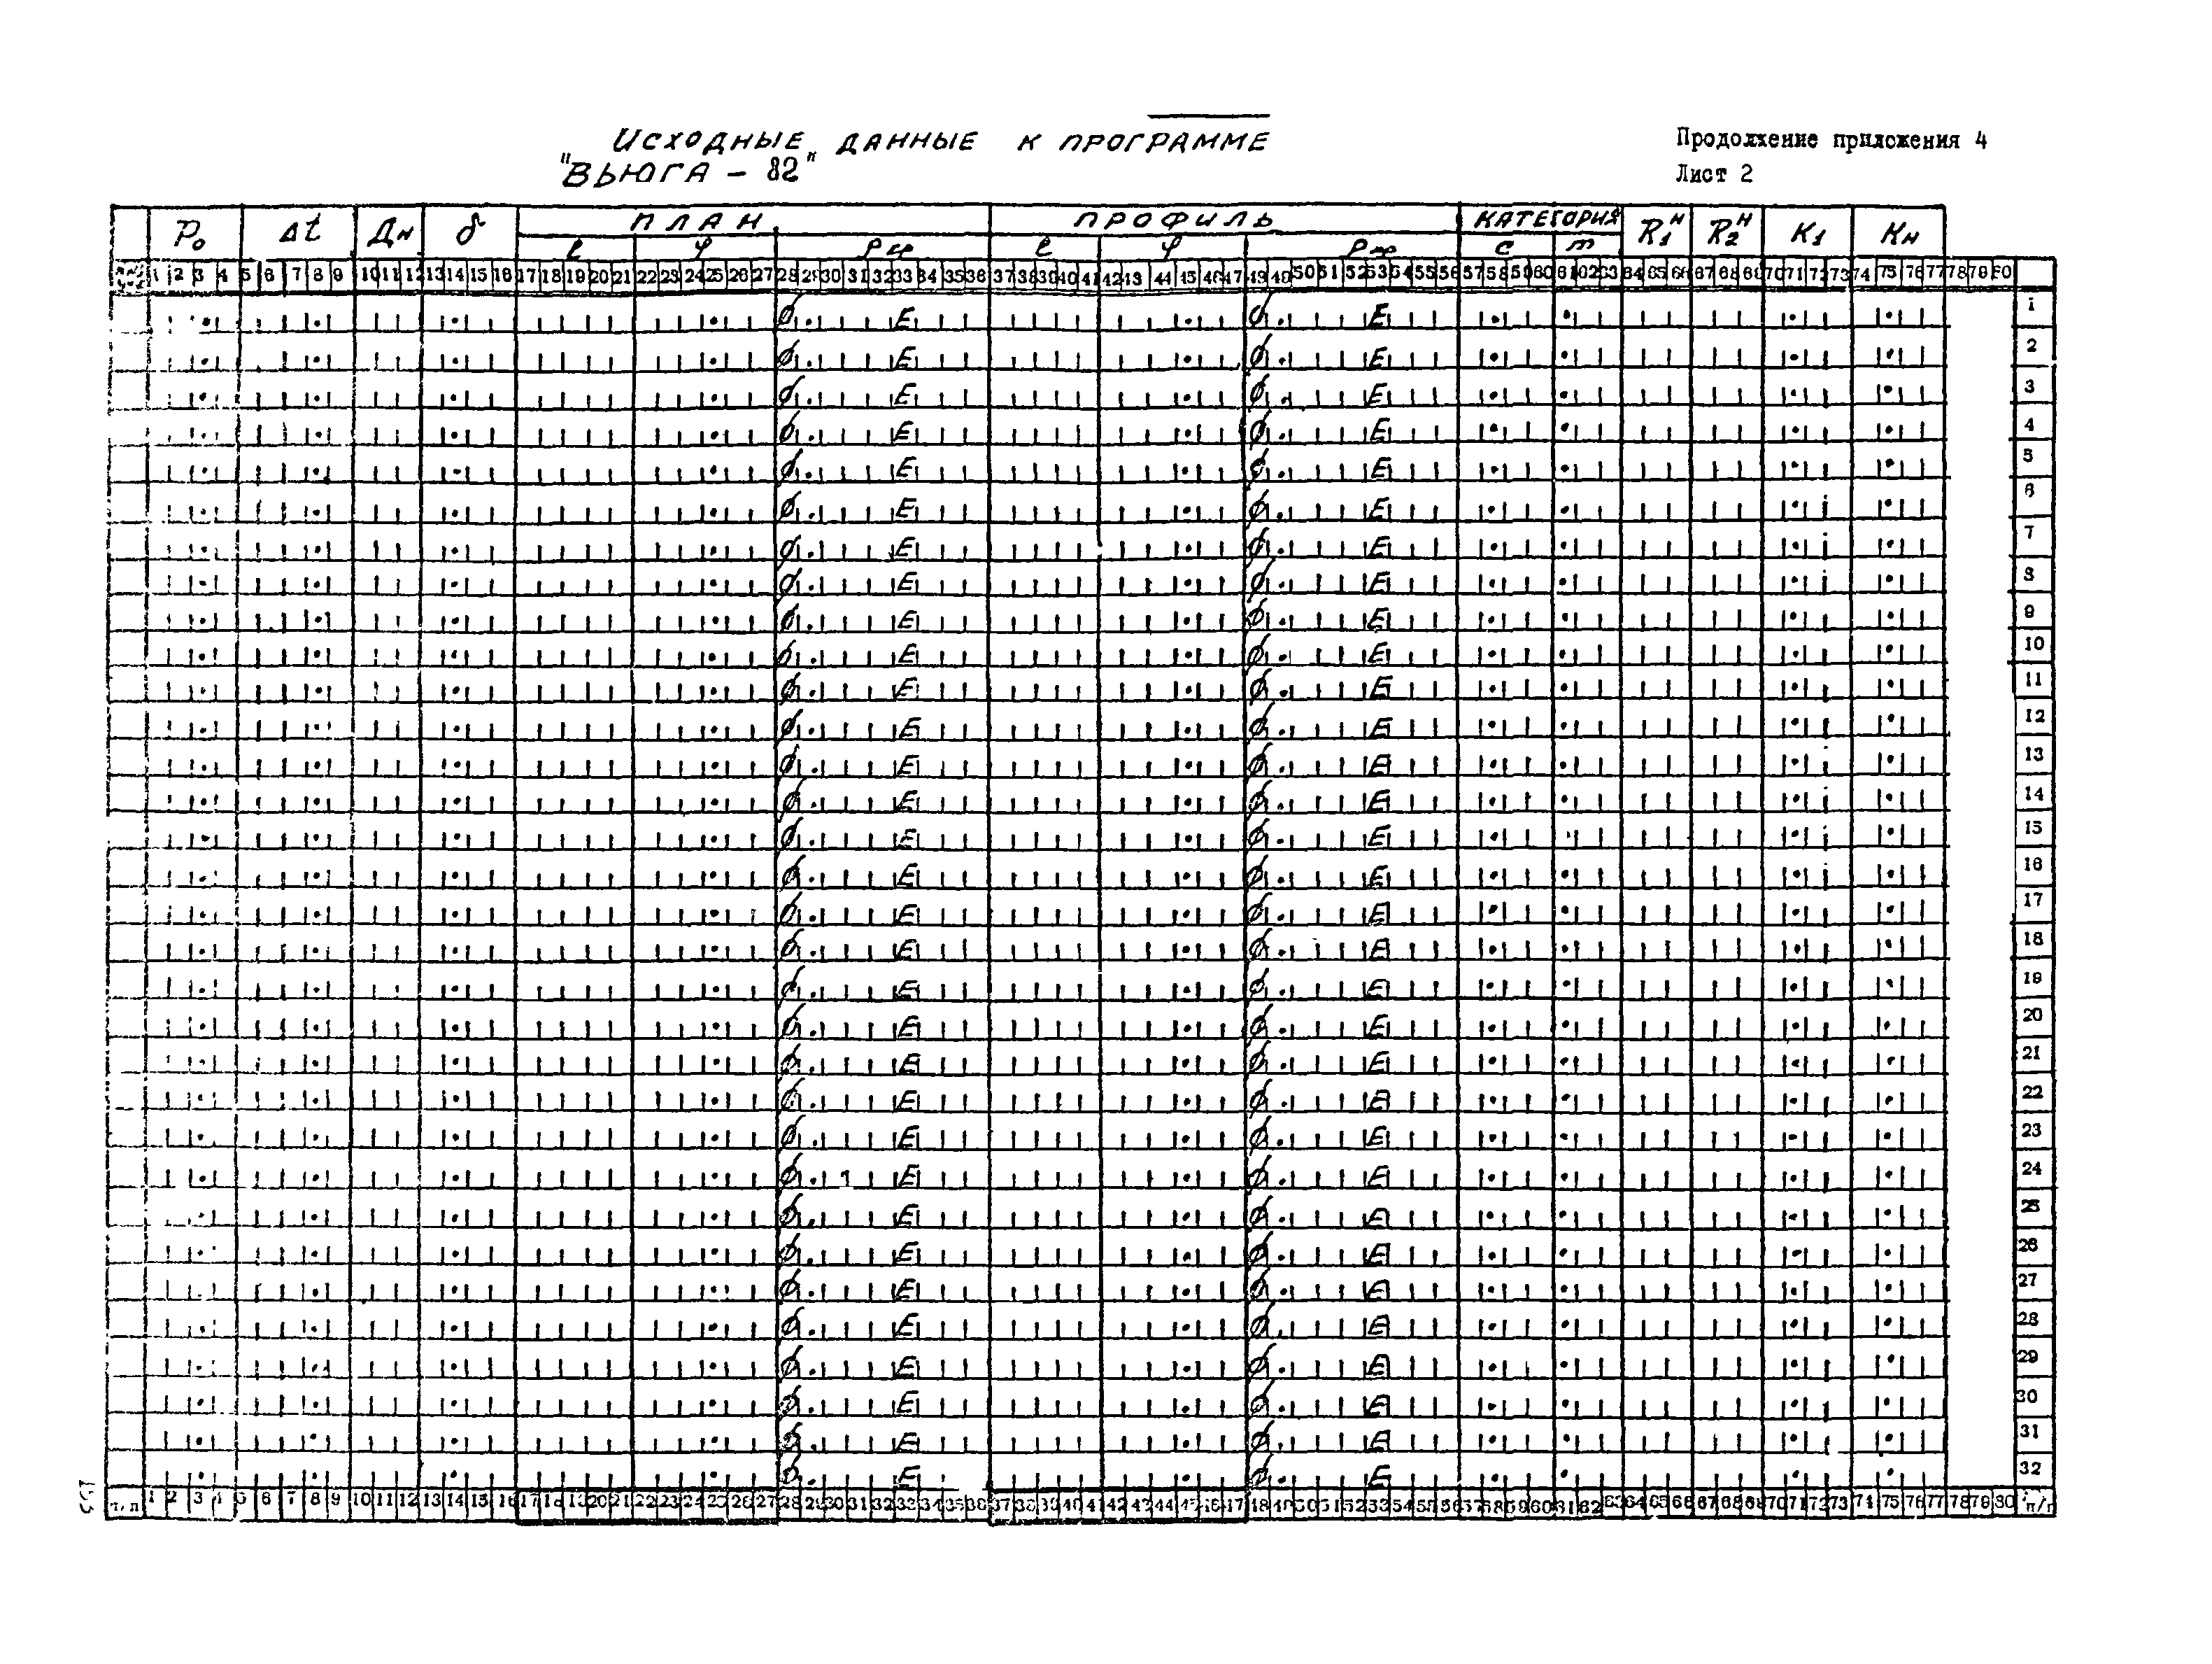 Исходные данные к программе
"Вьюга - 82"
Продолжение приложения 4
Лист 2
P₀ Δt Дн δ ПЛАН ПРОФИЛЬ КАТЕГОРИЯ R₁ᴴ R₂ᴴ K₁ Kн
ℓ φ ℓ φ c m
1 2 3 4 5 6 7 8 9 10 11 12 13 14 15 16 17 18 19 20 21 22 23 24 25 26 27 28 29 30 31 32 33 34 35 36 37 38 39 40 41 42 43 44 45 46 47 48 49 50 51 52 53 54 55 56 57 58 59 60 61 62 63 64 65 66 67 68 69 70 71 72 73 74 75 76 77 78 79 80
Ø . E Ø . E 1
Ø . E Ø . E 2
Ø . E Ø . E 3
Ø . E Ø . E 4
Ø . E Ø . E 5
Ø . E Ø . E 6
Ø . E Ø . E 7
Ø . E Ø . E 8
Ø . E Ø . E 9
Ø . E Ø . E 10
Ø . E Ø . E 11
Ø . E Ø . E 12
Ø . E Ø . E 13
Ø . E Ø . E 14
Ø . E Ø . E 15
Ø . E Ø . E 16
Ø . E Ø . E 17
Ø . E Ø . E 18
Ø . E Ø . E 19
Ø . E Ø . E 20
Ø . E Ø . E 21
Ø . E Ø . E 22
Ø . E Ø . E 23
Ø . E Ø . E 24
Ø . E Ø . E 25
Ø . E Ø . E 26
Ø . E Ø . E 27
Ø . E Ø . E 28
Ø . E Ø . E 29
Ø . E Ø . E 30
Ø . E Ø . E 31
Ø . E Ø . E 32
п/п 1 2 3 4 5 6 7 8 9 10 11 12 13 14 15 16 17 18 19 20 21 22 23 24 25 26 27 28 29 30 31 32 33 34 35 36 37 38 39 40 41 42 43 44 45 46 47 48 49 50 51 52 53 54 55 56 57 58 59 60 61 62 63 64 65 66 67 68 69 70 71 72 73 74 75 76 77 78 79 80 п/п